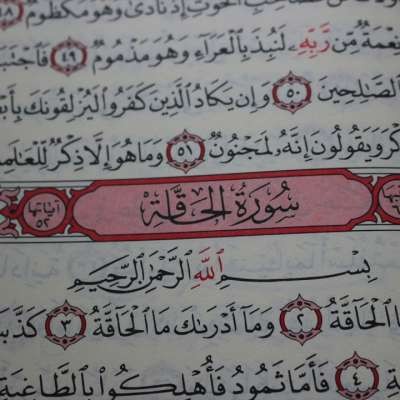 إِذْ نَادَىٰ وَهُوَ مَكْظُومٌ ٤٨
نِعْمَةٌ مِّن رَّبِّهِۦ لَنُبِذَ بِٱلْعَرَآءِ وَهُوَ مَذْمُومٌ ٤٩
ٱلصَّٰلِحِينَ ٥٠ وَإِن يَكَادُ ٱلَّذِينَ كَفَرُوا۟ لَيُزْلِقُونَكَ
وَيَقُولُونَ إِنَّهُۥ لَمَجْنُونٌ ٥١ وَمَا هُوَ إِلَّا ذِكْرٌ لِّلْعَٰلَمِينَ
آياتها ٥٢ سُورَةُ الحَاقَّةِ
بِسْمِ ٱللَّهِ ٱلرَّحْمَٰنِ ٱلرَّحِيمِ
مَا ٱلْحَآقَّةُ ٢ وَمَآ أَدْرَىٰكَ مَا ٱلْحَآقَّةُ ٣
٤ فَأَمَّا ثَمُودُ فَأُهْلِكُوا۟ بِٱلطَّاغِيَةِ